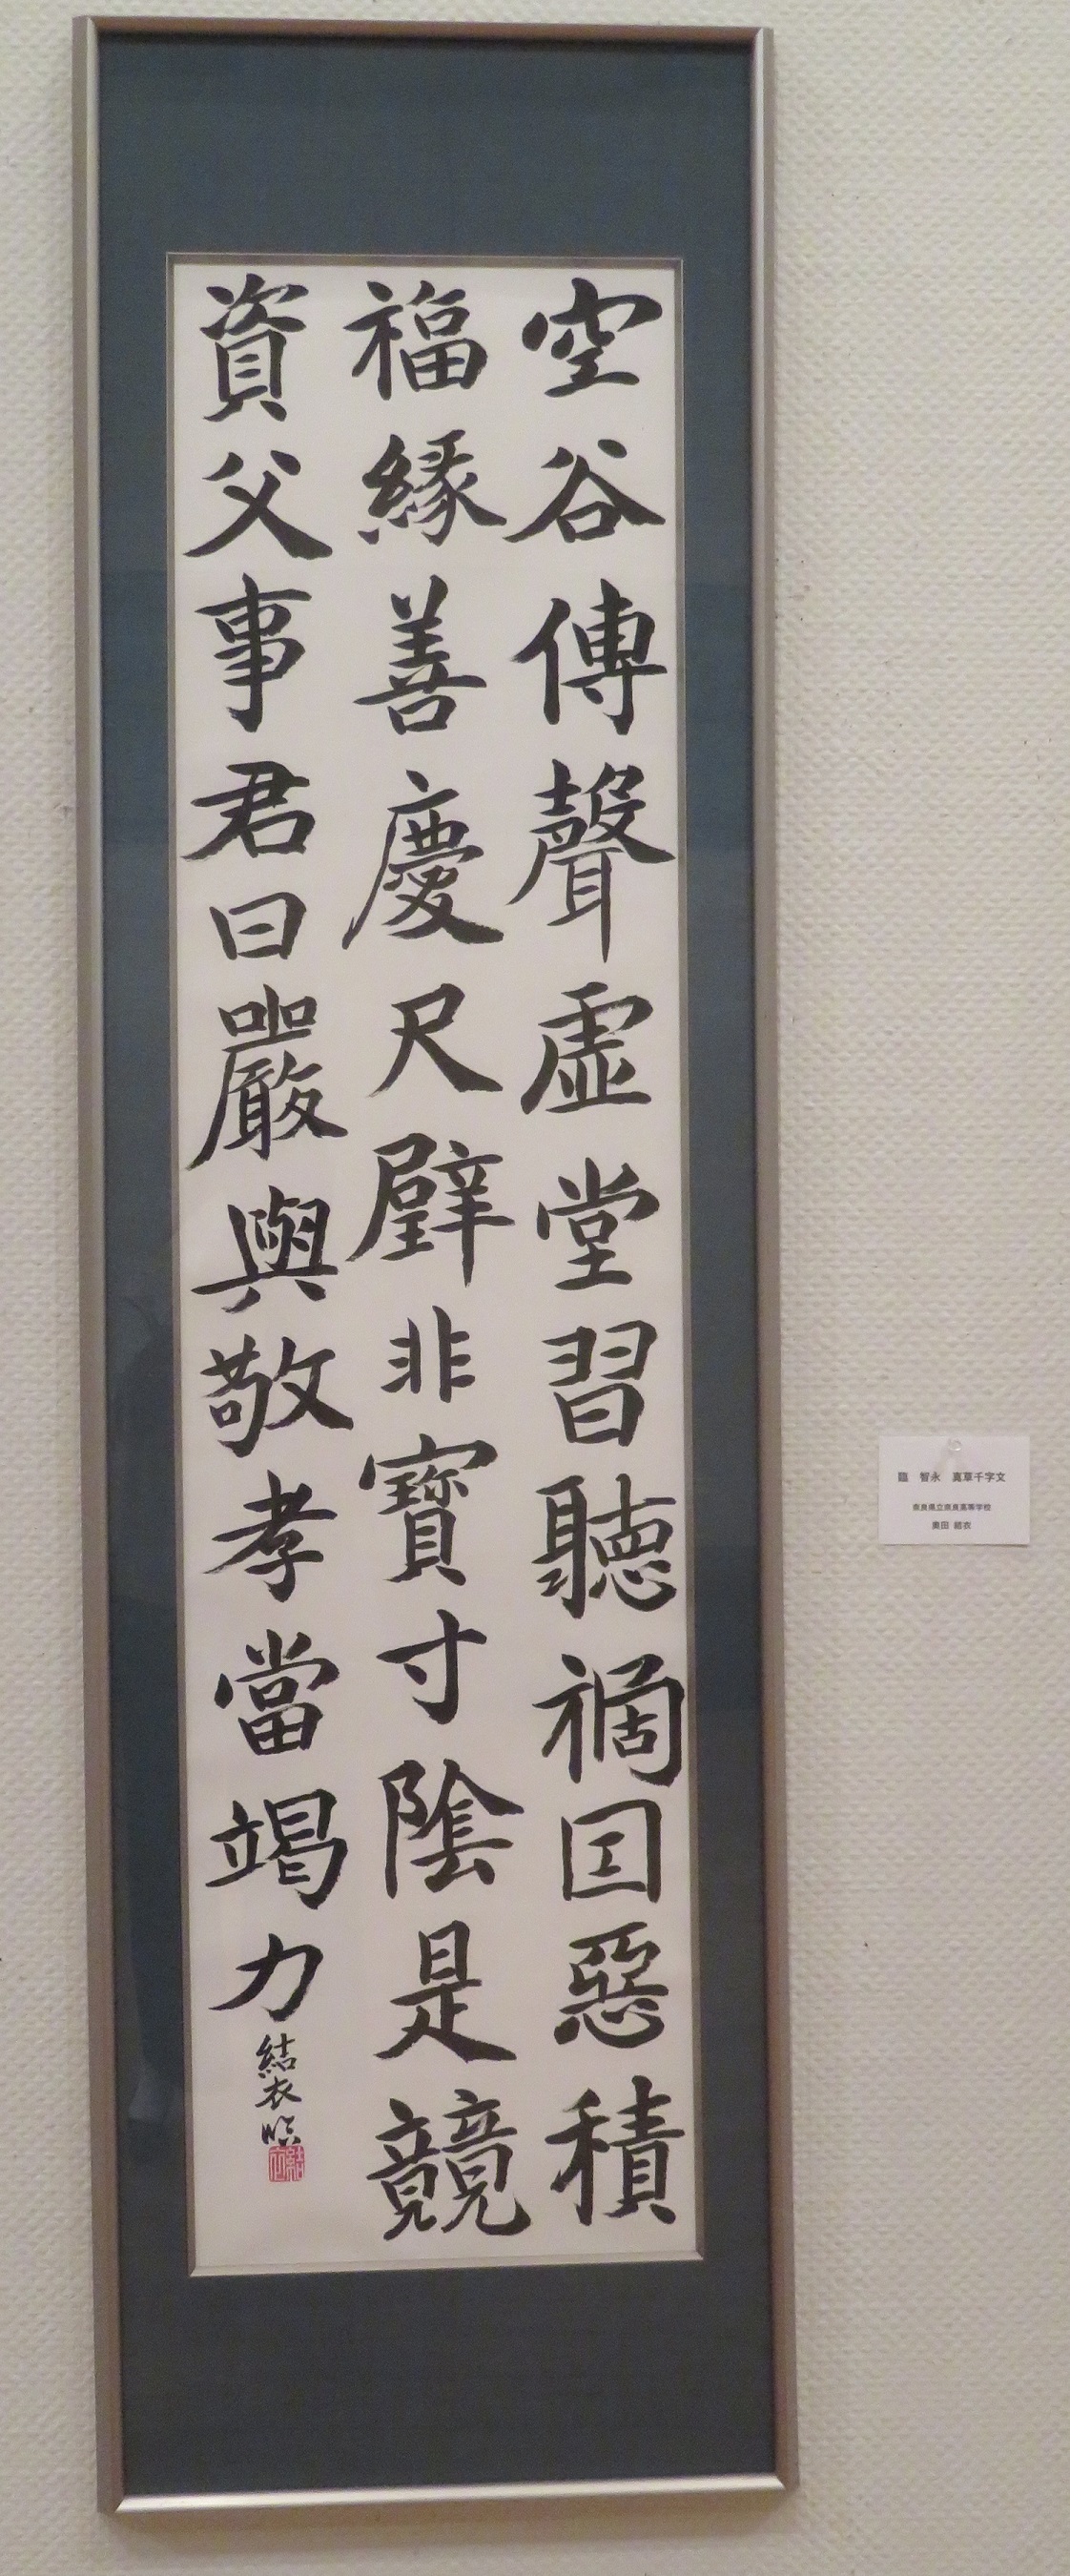 空谷傳聲虚堂習聽禍因惡積
福緣善慶尺璧非寶寸陰是競
資父事君曰嚴與敬孝當竭力
結衣臨
結衣
臨 智永 真草千字文
奈良県立奈良高等学校
奥田 結衣